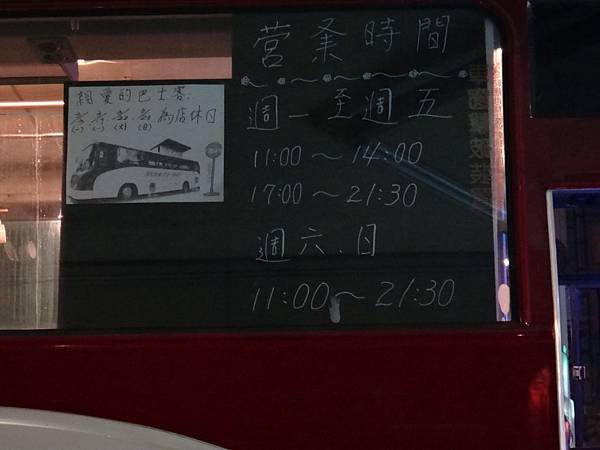 營業時間
週一至週五
11:00～14:00
17:00～21:30
週六.日
11:00～21:30
親愛的巴士客:
為店休日
(一) (一) (火) (日)